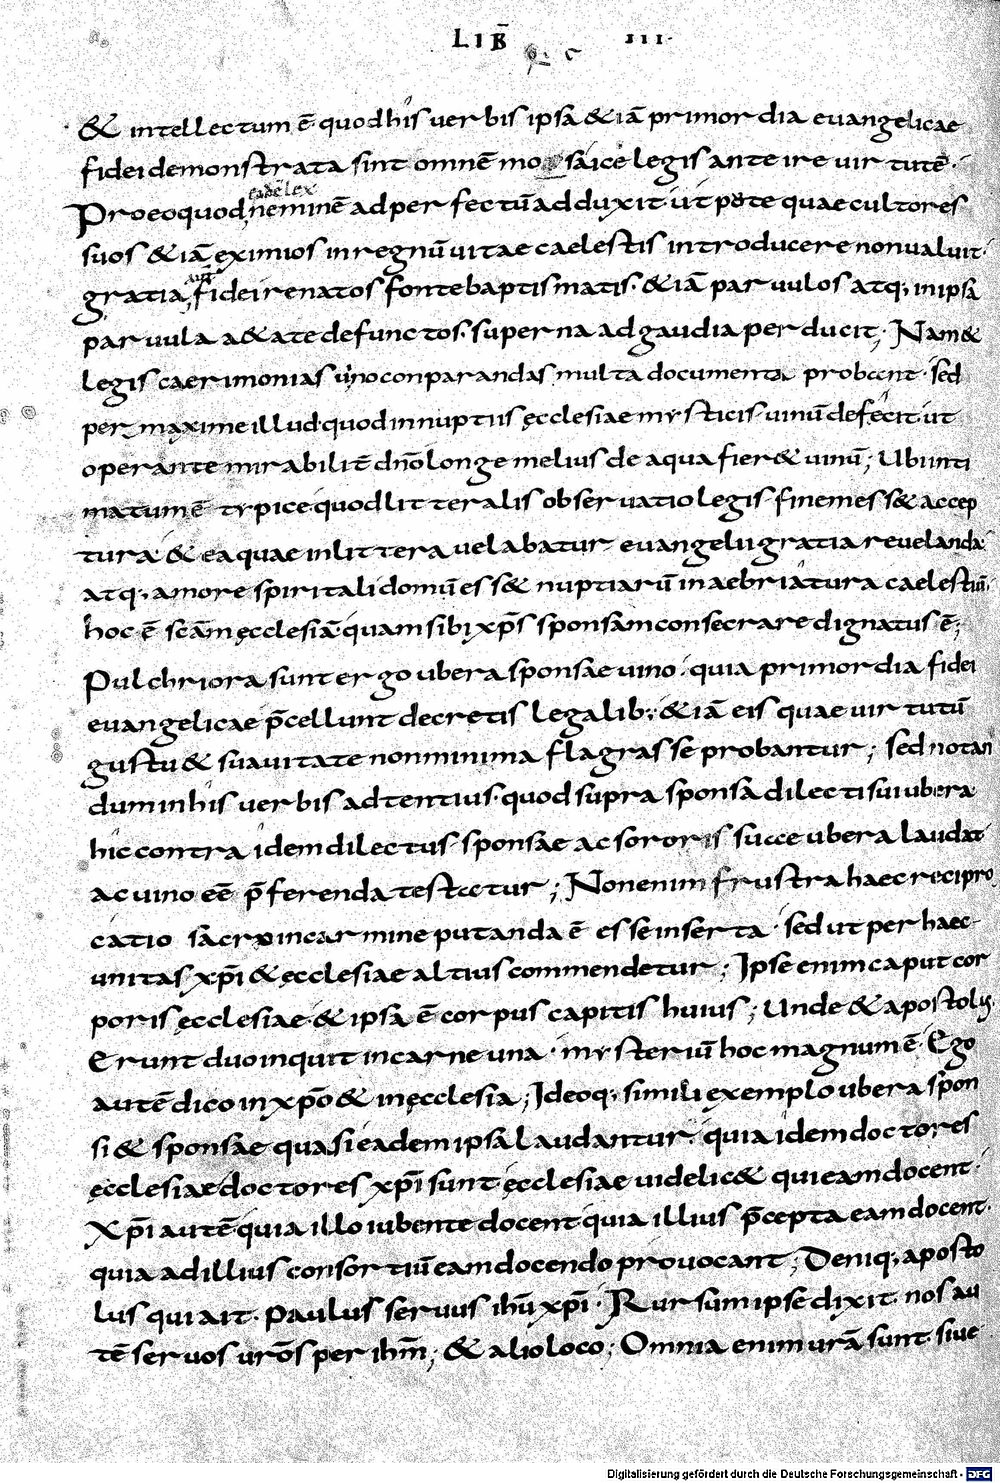 LIB̄ III·
& intellectum ē· quod his uerbis ipsā & iā primordia euangelicae
fidei demonstrata sint omnē mosaice legis anteire uirtutē·
eadē lex
Pro eo quod neminē ad perfectū adduxit· ut pote quae cultores
suos & iā eximios in regnū uitae caelestis introducere non ualuit·
autē
gratia fidei renatos fonte baptismatis· & iā paruulos atq; in ipsa
paruula a&ate defunctos· superna ad gaudia perducit; Nam &
legis caerimonias uino conparandas multa documenta probant· sed
per maxime illud quod in nuptiis ęcclesiae mysticis uinū defecit ut
operante mirabilit̄ dn̄o longe melius de aqua fier& uinū; Ubi inti
matum ē typice quod litteralis obseruatio legis finem ess& accep
tura· & ea quae in littera uelabatur euangelii gratia reuelanda
atq; amore spiritali domū ess& nuptiarū inaebriatura caelestiū·
hoc ē scām ęcclesiā quam sibi xp̄s sponsam consecrare dignatus ē;
Pulchriora sunt ergo ubera sponsae uino· quia primordia fidei
euangelicae p̄cellunt decretis legalib; & iā eis quae uirtutū
gustu & suauitate non minima flagrasse probantur; sed notan
dum in his uerbis adtentius· quod supra sponsa dilecti sui ubera
hic contra idem dilectus sponsae ac sororis suae ubera laudat
ac uino eē p̄ferenda testatur; Non enim frustra haec recipro
catio sacro in carmine putanda ē esse inserta· sed ut per haec
unitas xp̄i & ęcclesiae altius commendetur; Ipse enim caput cor
poris ęcclesiae· & ipsa ē corpus capitis huius; Unde & apostolus
Erunt duo inquit in carne una· mysteriū hoc magnum ē· Ego
autē dico in xp̄o & in ęcclesia; Ideoq; simili exemplo ubera spon
si & sponsae quasi eadem ipsa laudantur· quia idem doctores
ęcclesiae doctores xp̄i sunt ęcclesiae uidelic& qui eam docent·
Xp̄i autē quia illo iubente docent quia illius p̄cepta eam docent·
quia ad illius consortiū eam docendo prouocant; Deniq; aposto
lus qui ait· paulus seruus ihū xp̄i· Rursum ipse dixit· nos au
tē seruos urōs per ihm̄; & alio loco; Omnia enim urā sunt· siue
Digitalisierung gefördert durch die Deutsche Forschungsgemeinschaft - DFG